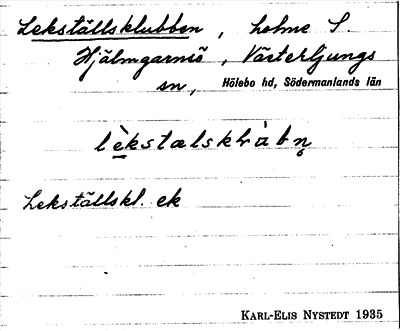 Lekställsklubben, holme S.
Hjälmgarnsö, Västerljungs
sn, Hölebo hd, Södermanlands län
Lekställskl. ek
KARL-ELIS NYSTEDT 1935